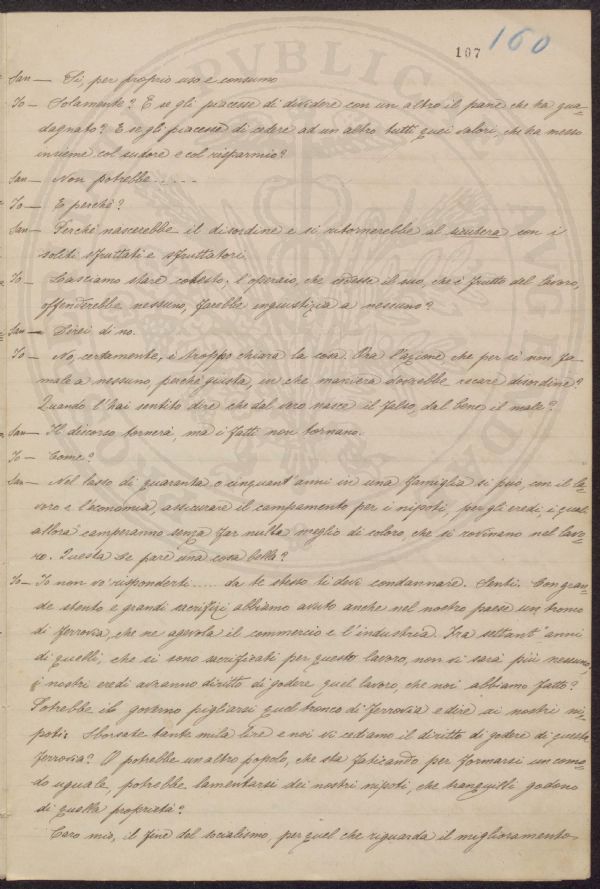 107 160
San — Sì per proprio uso e consumo
Io — Solamente? E se gli piacesse di dividere con un altro il pane che ha gua-
dagnato? E se gli piacesse di cedere ad un altro tutti quei valori, che ha messo
insieme col sudore e col risparmio?
San — Non potrebbe.....
Io — E perchè?
San — Perchè nascerebbe il disordine e si ritornerebbe al sicutera con i
soliti sfruttati e sfruttatori.
Io — Lasciamo stare cotesto, l'operaio, che cedesse il suo, che è frutto del lavoro,
offenderebbe nessuno, farebbe ingiustizia a nessuno?
San — Direi di no.
Io — No, certamente, è troppo chiara la cosa. Ora l'azione che per sè non fa
male a nessuno, perchè giusta, in che maniera dovrebbe recare disordine?
Quando l'hai sentito dire che dal vero nasce il falso, dal bene il male?
San — Il discorso tornerà, ma i fatti non tornano.
Io — Come?
San — Nel lasso di quaranta o cinquant'anni in una famiglia si può, con il la-
voro e l'economia assicurare il campamento per i nipoti, per gli eredi, i quali
allora camperanno senza far nulla meglio di coloro, che si rovinano nel lavo-
ro. Questa te pare una cosa bella?
Io — Io non vo' risponderti.... da te stesso ti devi condannare. Senti. Con gran-
de stento e grandi sacrifizi abbiamo avuto anche nel nostro paese un tronco
di ferrovia, che ne agevola il commercio e l'industria. Fra settant'anni
di quelli, che si sono sacrificati per questo lavoro, non vi sarà più nessuno,
i nostri eredi avranno diritto di godere quel lavoro, che noi abbiamo fatto?
Potrebbe il governo pigliarsi quel tronco di ferrovia e dire ai nostri ni-
poti: Sborsate tante mila lire e noi vi cediamo il diritto di godere di questa
ferrovia? O potrebbe un altro popolo, che sta faticando per formarsi un como-
do uguale, potrebbe lamentarsi dei nostri nipoti, che tranquilli godono
di quella proprietà?
Caro mio, il fine del socialismo, per quel che riguarda il miglioramento